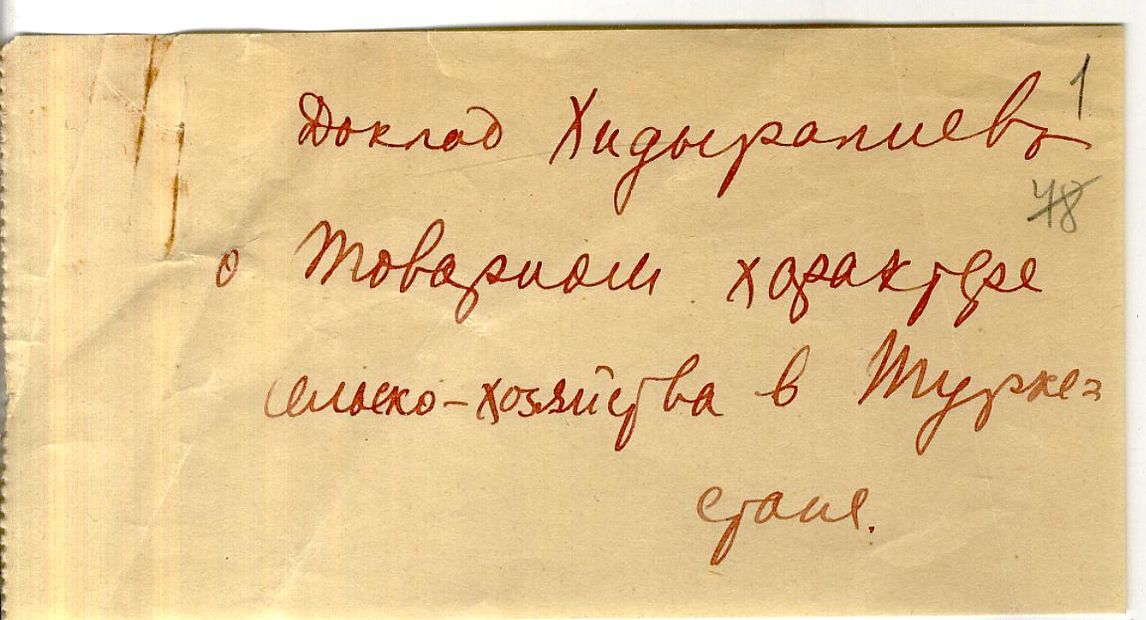 1
Доклад Хидыралиева
78
о товарном характере
сельско-хозяйства в Турке=
стане.